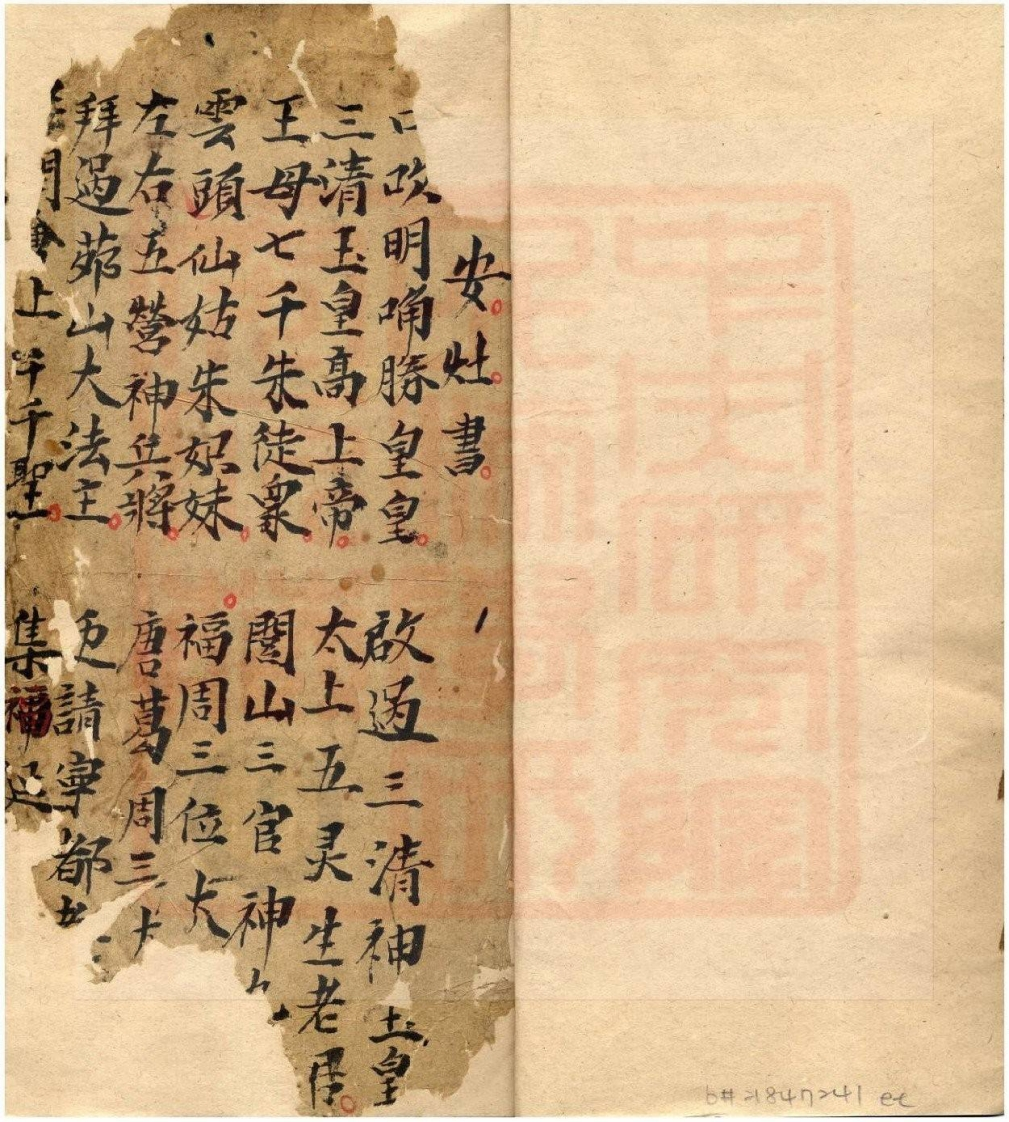 安灶書
吹明喃勝皇皇 啟過三清神玉皇
三清玉皇高上帝 太上五灵生老君
王母七千朱徒眾 閭山三官神
雲頭仙姑朱姐妹 福周三位大
左右五營神兵將 唐葛周三
拜過茆山大法主 請寧都
門 上千千聖 集福延
b# 21847241